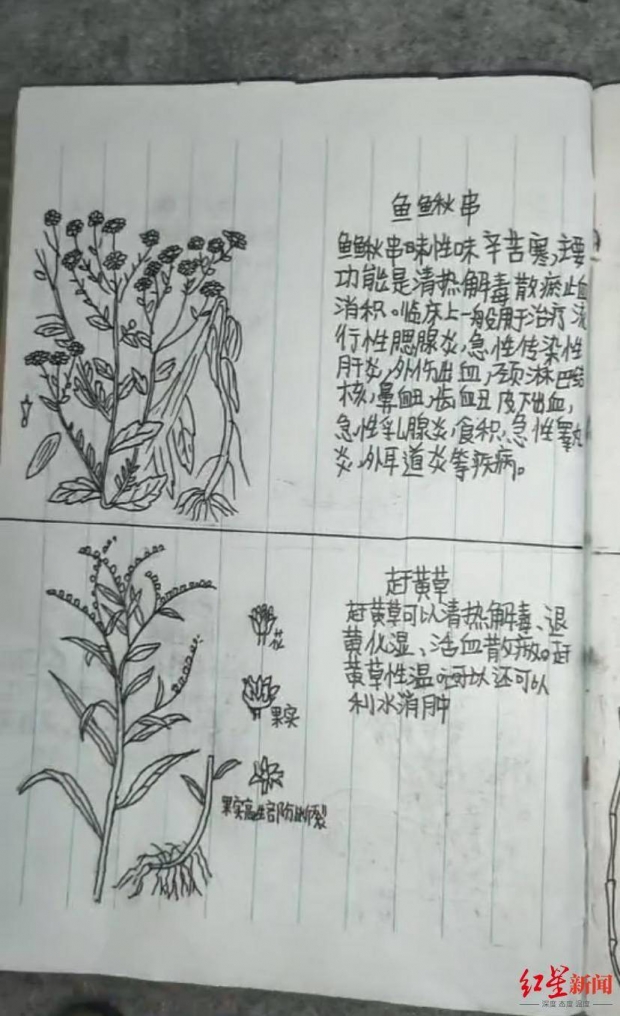 鱼鳅串
鱼鳅串味性味辛苦寒,主要
功能是清热解毒散瘀止血
消积。临床上一般用于治疗流
行性腮腺炎,急性传染性
肝炎,外伤出血,颈淋巴结
核,鼻血丑,齿血丑皮下出血,
急性乳腺炎,食积,急性睾丸
炎,外耳道炎等疾病。
赶黄草
赶黄草可以清热解毒、退
黄化湿、活血散瘀。赶
黄草性温 可以还可以
利水消肿
花
果实
果实
红星新闻
深度 态度 温度